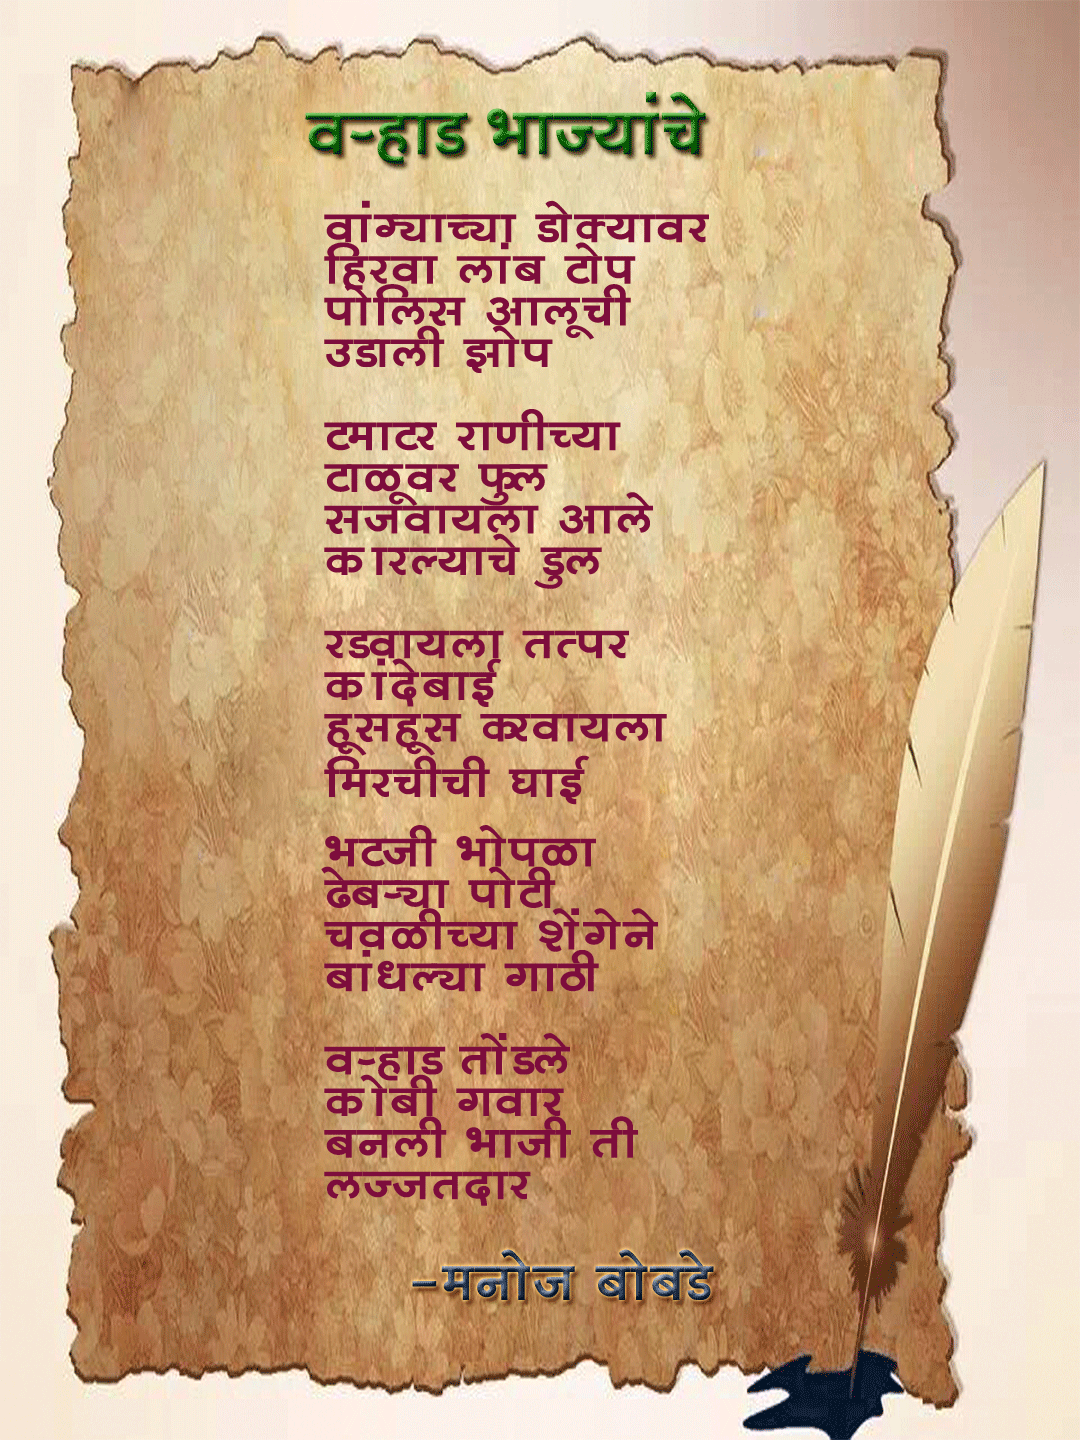 वऱ्हाड भाज्यांचे
वांग्याच्या डोक्यावर
हिरवा लांब टोप
पोलिस आलूची
उडाली झोप
टमाटर राणीच्या
टाळूवर फुल
सजवायला आले
कारल्याचे डुल
रडवायला तत्पर
कांदेबाई
हूसहूस करवायला
मिरचीची घाई
भटजी भोपळा
ढेबऱ्या पोटी
चवळीच्या शेंगेने
बांधल्या गाठी
वऱ्हाड तोंडले
कोबी गवार
बनली भाजी ती
लज्जतदार
-मनोज बोबडे